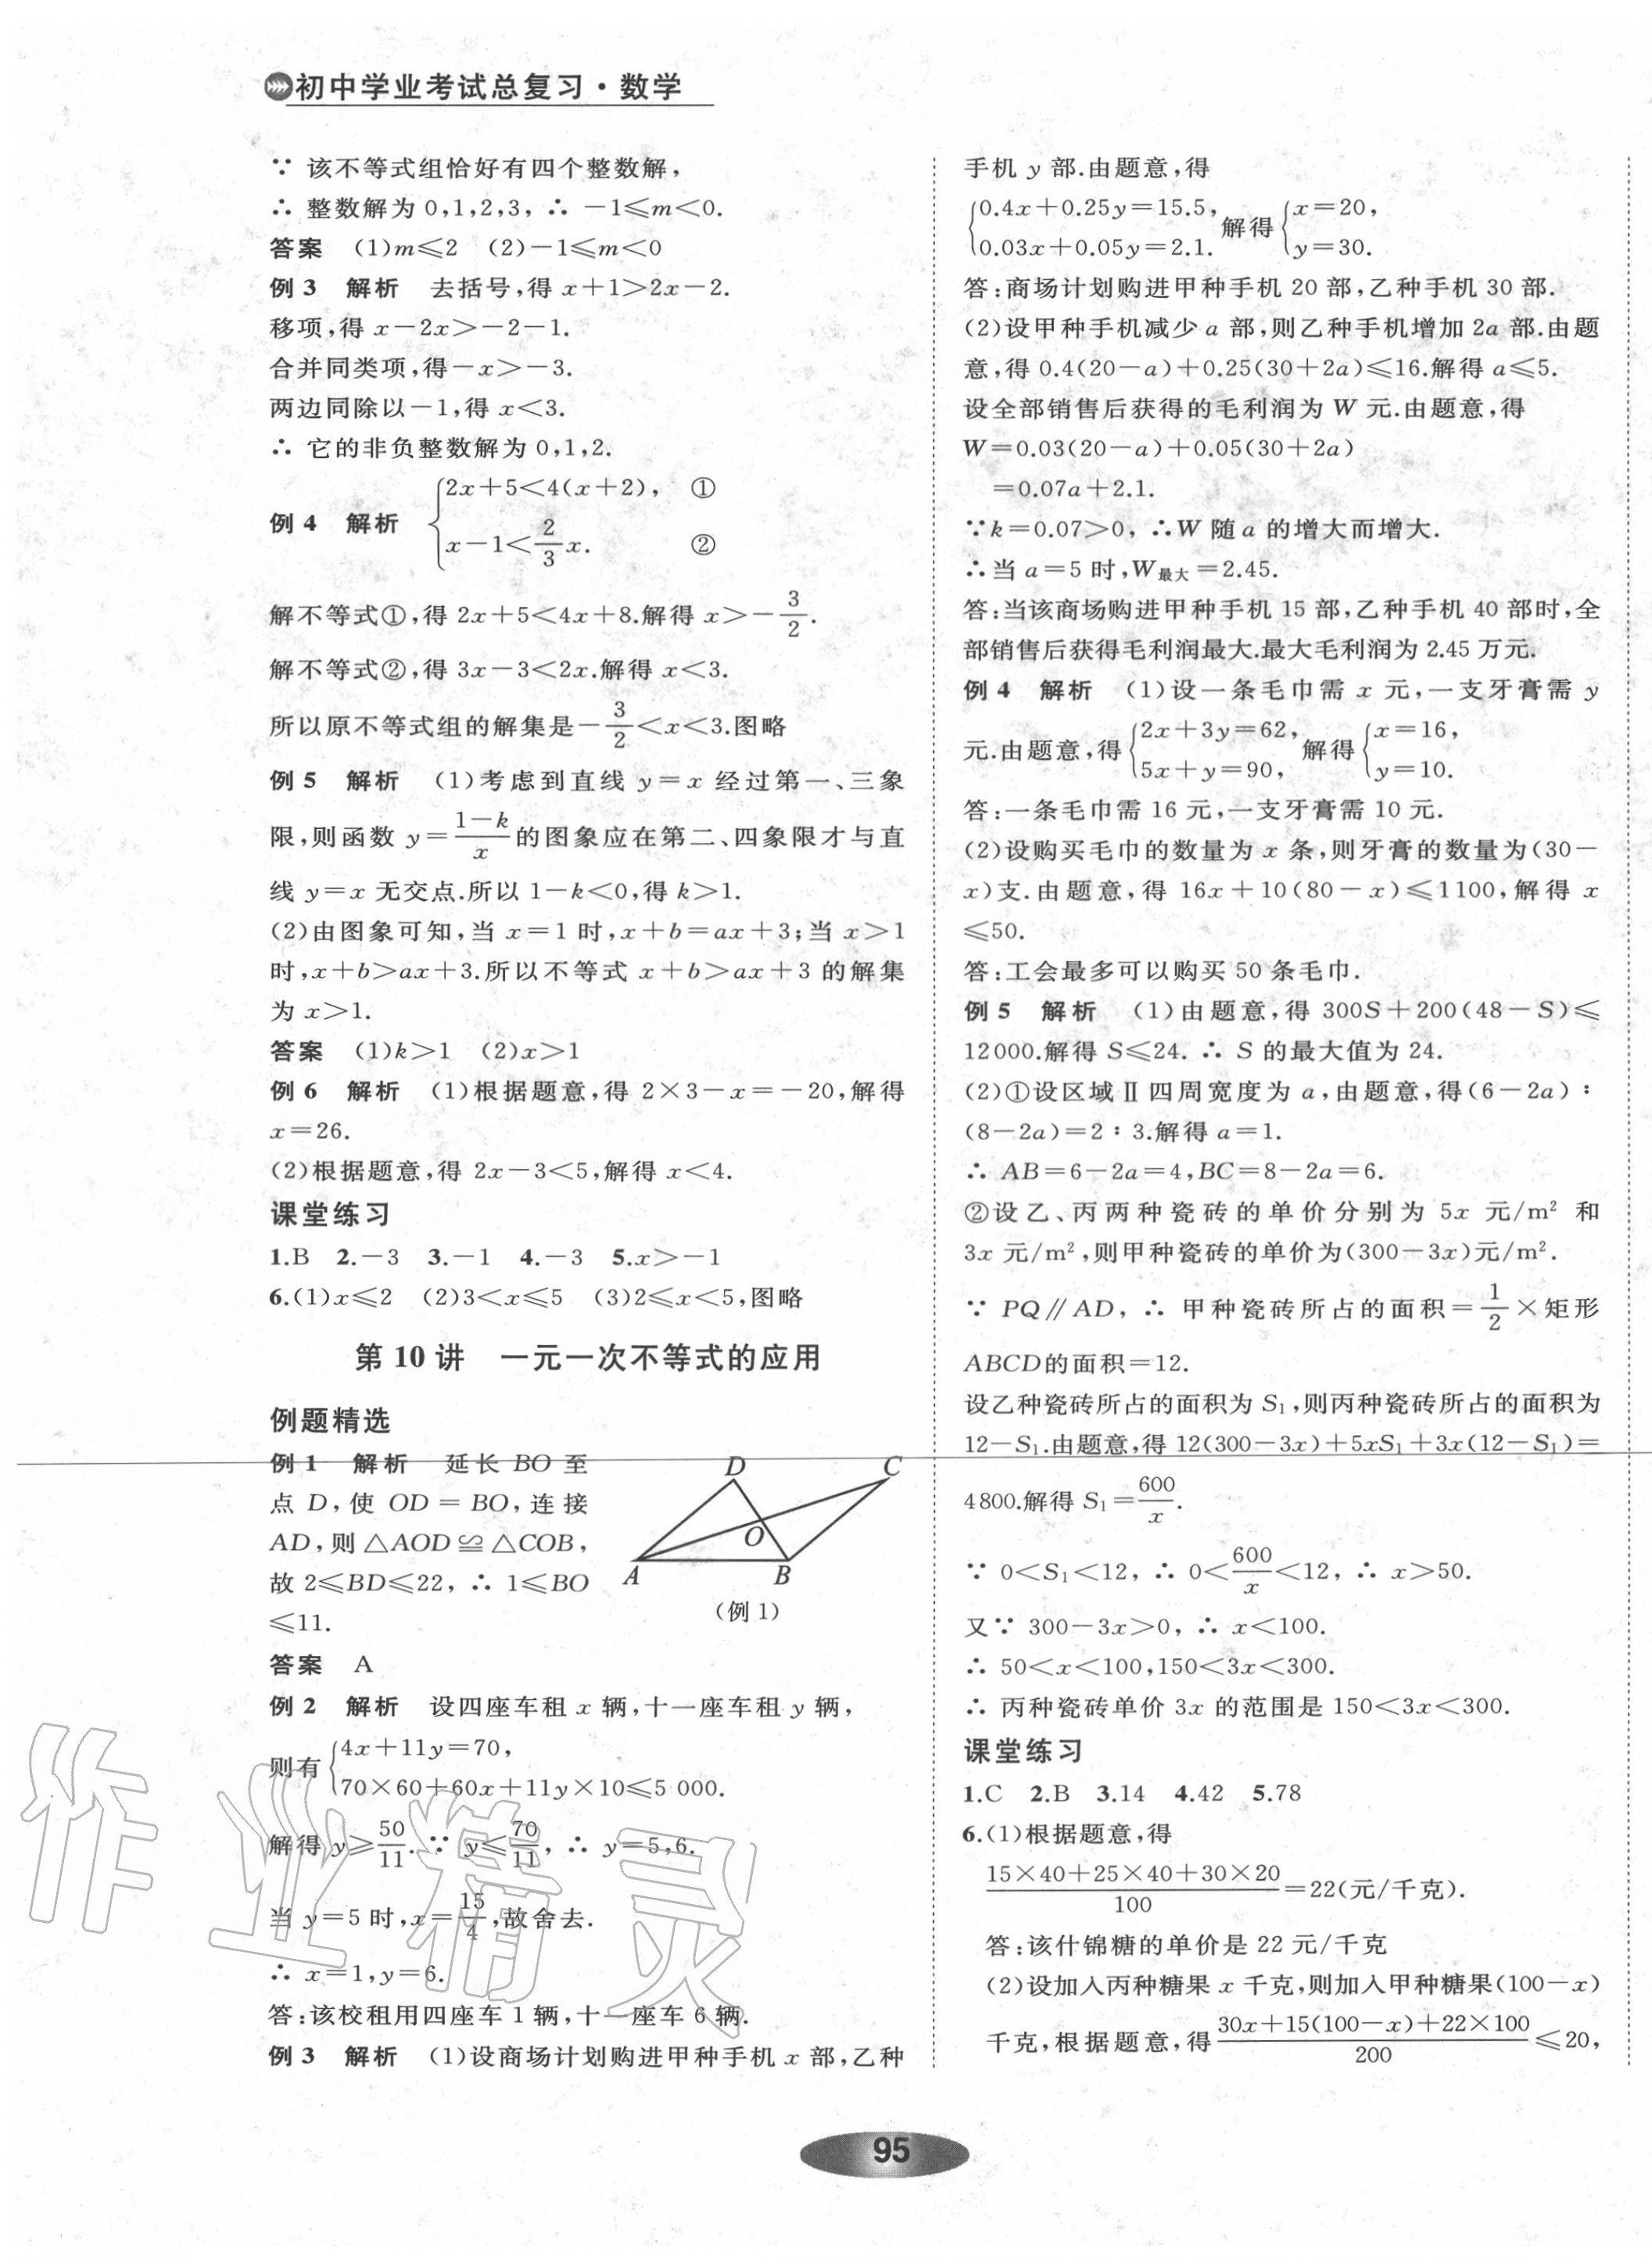 初中学业考试总复习·数学
∵ 该不等式组恰好有四个整数解,
∴ 整数解为 0,1,2,3, ∴ -1≤m<0.
答案 (1)m≤2 (2)-1≤m<0
例 3 解析 去括号,得 x+1>2x-2.
移项,得 x-2x>-2-1.
合并同类项,得-x>-3.
两边同除以-1,得 x<3.
∴ 它的非负整数解为 0,1,2.
例 4 解析 {2x+5<4(x+2), ①
x-1<2/3x. ②
解不等式①,得 2x+5<4x+8.解得 x>-3/2.
解不等式②,得 3x-3<2x.解得 x<3.
所以原不等式组的解集是-3/2<x<3.图略
例 5 解析 (1)考虑到直线 y=x 经过第一、三象
限,则函数 y=(1-k)/x的图象应在第二、四象限才与直
线 y=x 无交点.所以 1-k<0,得 k>1.
(2)由图象可知,当 x=1 时,x+b=ax+3;当 x>1
时,x+b>ax+3.所以不等式 x+b>ax+3 的解集
为 x>1.
答案 (1)k>1 (2)x>1
例 6 解析 (1)根据题意,得 2×3-x=-20,解得
x=26.
(2)根据题意,得 2x-3<5,解得 x<4.
课堂练习
1.B 2.-3 3.-1 4.-3 5.x>-1
6.(1)x≤2 (2)3<x≤5 (3)2≤x<5,图略
第 10 讲 一元一次不等式的应用
例题精选
例 1 解析 延长 BO 至
点 D,使 OD = BO,连接
AD,则 △AOD ≌ △COB,
故 2≤BD≤22, ∴ 1≤BO
≤11.
D
C
O
A
B
(例 1)
答案 A
例 2 解析 设四座车租 x 辆,十一座车租 y 辆,
则有 {4x+11y=70,
70×60+60x+11y×10≤5 000.
解得 y≥50/11. ∵ y≤70/11, ∴ y=5,6.
当 y=5 时,x=15/4,故舍去.
∴ x=1,y=6.
答:该校租用四座车 1 辆,十一座车 6 辆.
例 3 解析 (1)设商场计划购进甲种手机 x 部,乙种
手机 y 部.由题意,得
{0.4x+0.25y=15.5, 0.03x+0.05y=2.1. 解得 {x=20, y=30.
答:商场计划购进甲种手机 20 部,乙种手机 30 部.
(2)设甲种手机减少 a 部,则乙种手机增加 2a 部.由题
意,得 0.4(20-a)+0.25(30+2a)≤16.解得 a≤5.
设全部销售后获得的毛利润为 W 元.由题意,得
W=0.03(20-a)+0.05(30+2a)
=0.07a+2.1.
∵k=0.07>0, ∴W 随 a 的增大而增大.
∴当 a=5 时,W最大=2.45.
答:当该商场购进甲种手机 15 部,乙种手机 40 部时,全
部销售后获得毛利润最大.最大毛利润为 2.45 万元.
例 4 解析 (1)设一条毛巾需 x 元,一支牙膏需 y
元.由题意,得 {2x+3y=62, 5x+y=90, 解得 {x=16, y=10.
答:一条毛巾需 16 元,一支牙膏需 10 元.
(2)设购买毛巾的数量为 x 条,则牙膏的数量为(30-
x)支.由题意,得 16x+10(80-x)≤1100,解得 x
≤50.
答:工会最多可以购买 50 条毛巾.
例 5 解析 (1)由题意,得 300S+200(48-S)≤
12000.解得 S≤24. ∴ S 的最大值为 24.
(2)①设区域Ⅱ四周宽度为 a,由题意,得(6-2a):
(8-2a)=2:3.解得 a=1.
∴ AB=6-2a=4,BC=8-2a=6.
②设乙、丙两种瓷砖的单价分别为 5x 元/m² 和
3x 元/m²,则甲种瓷砖的单价为(300-3x)元/m².
∵ PQ∥AD, ∴ 甲种瓷砖所占的面积=1/2×矩形
ABCD的面积=12.
设乙种瓷砖所占的面积为 S₁,则丙种瓷砖所占的面积为
12-S₁.由题意,得 12(300-3x)+5xS₁+3x(12-S₁)=
4800.解得 S₁=600/x.
∵ 0<S₁<12, ∴ 0<600/x<12, ∴ x>50.
又∵ 300-3x>0, ∴ x<100.
∴ 50<x<100,150<3x<300.
∴ 丙种瓷砖单价 3x 的范围是 150<3x<300.
课堂练习
1.C 2.B 3.14 4.42 5.78
6.(1)根据题意,得
(15×40+25×40+30×20)/100=22(元/千克).
答:该什锦糖的单价是 22 元/千克
(2)设加入丙种糖果 x 千克,则加入甲种糖果(100-x)
千克,根据题意,得(30x+15(100-x)+22×100)/200≤20,
95
作业精灵